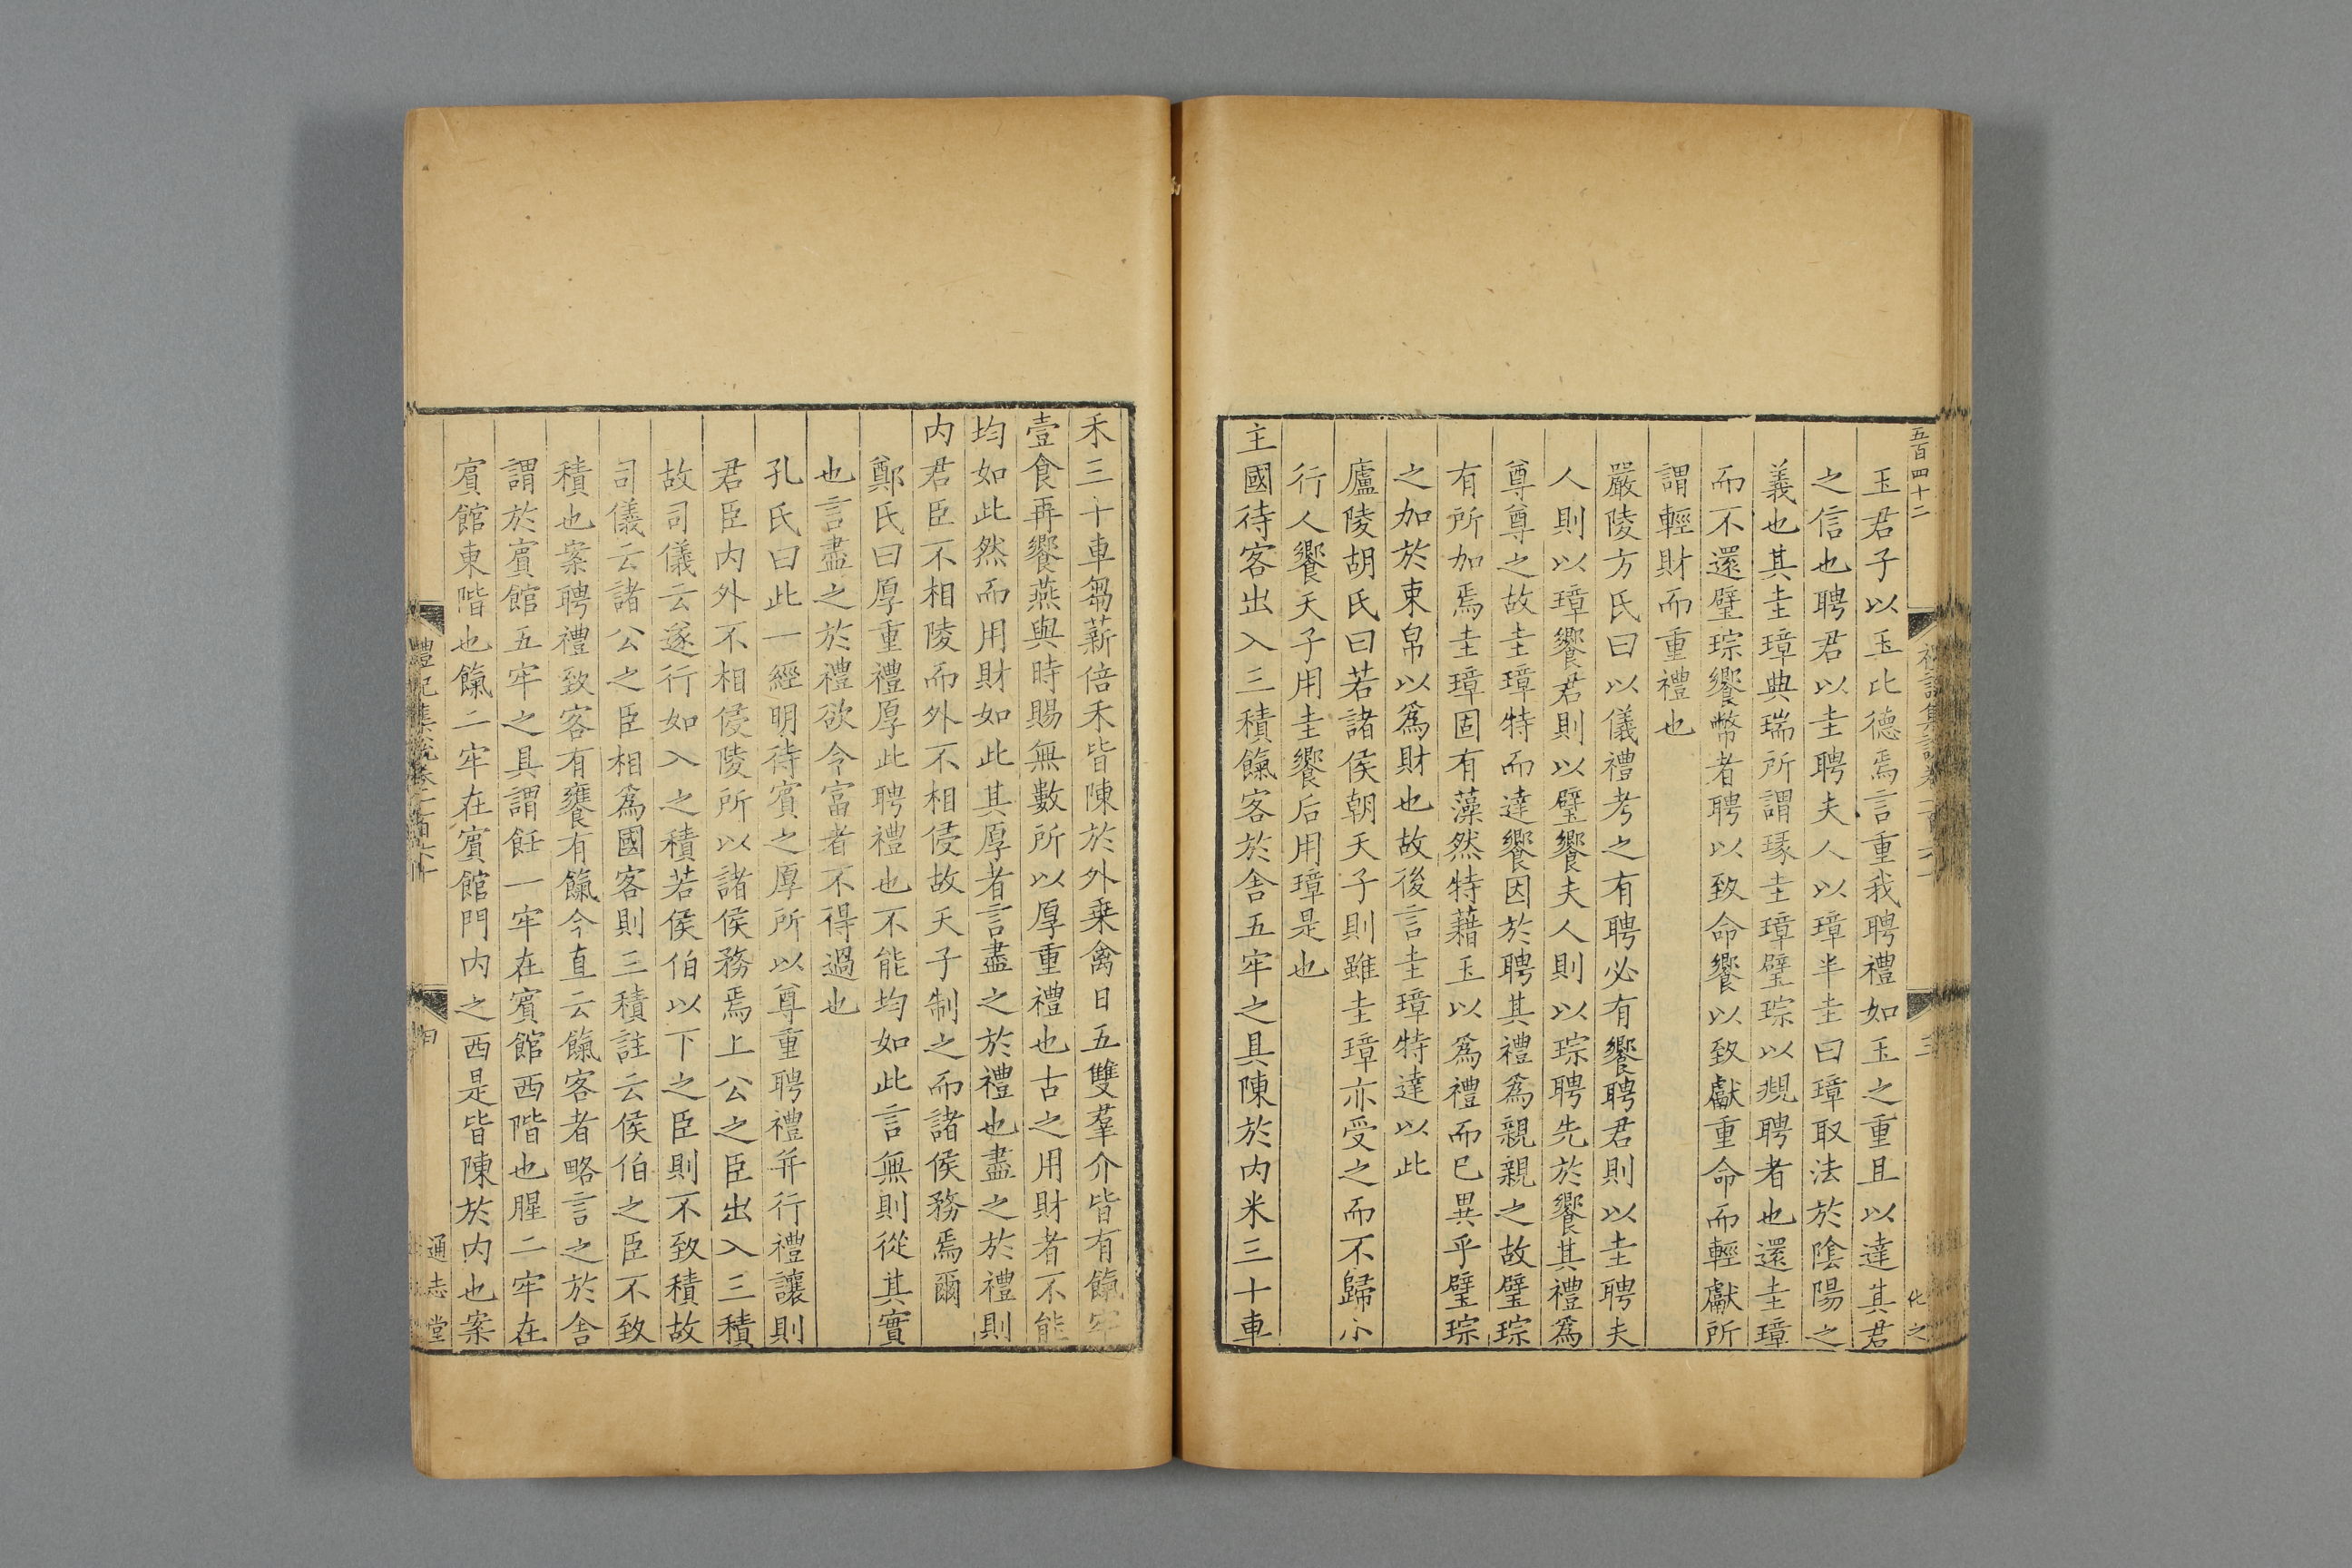 五百四十二
玉君子以玉比德焉言重我聘禮如玉之重且以達其君
之信也聘君以圭聘夫人以璋半圭曰璋取法於陰陽之
義也其圭璋典瑞所謂瑑圭璋璧琮以覜聘者也還圭璋
而不還璧琮饗幣者聘以致命饗以致獻重命而輕獻所
謂輕財而重禮也
嚴陵方氏曰以儀禮考之有聘必有饗聘君則以圭聘夫
人則以璋饗君則以璧饗夫人則以琮聘先於饗其禮爲
尊尊之故圭璋特而達饗因於聘其禮爲親親之故璧琮
有所加焉圭璋固有藻然特藉玉以爲禮而已異乎璧琮
之加於束帛以爲財也故後言圭璋特達以此
廬陵胡氏曰若諸侯朝天子則雖圭璋亦受之而不歸小
行人饗天子用圭饗后用璋是也
主國待客出入三積餼客於舍五牢之具陳於内米三十車
禾三十車芻薪倍禾皆陳於外乗禽日五雙羣介皆有餼牢
壹食再饗燕與時賜無數所以厚重禮也古之用財者不能
均如此然而用財如此其厚者言盡之於禮也盡之於禮則
内君臣不相陵而外不相侵故天子制之而諸侯務焉爾
鄭氏曰厚重禮厚此聘禮也不能均如此言無則從其實
也言盡之於禮欲令富者不得過也
孔氏曰此一經明待賓之厚所以尊重聘禮并行禮讓則
君臣内外不相侵陵所以諸侯務焉上公之臣出入三積
故司儀云遂行如入之積若侯伯以下之臣則不致積故
司儀云諸公之臣相爲國客則三積註云侯伯之臣不致
積也案聘禮致客有饔有餼今直云餼客者略言之於舍
謂於賓館五牢之具謂飪一牢在賓館西階也腥二牢在
賓館東階也餼二牢在賓館門内之西是皆陳於内也案
通志堂